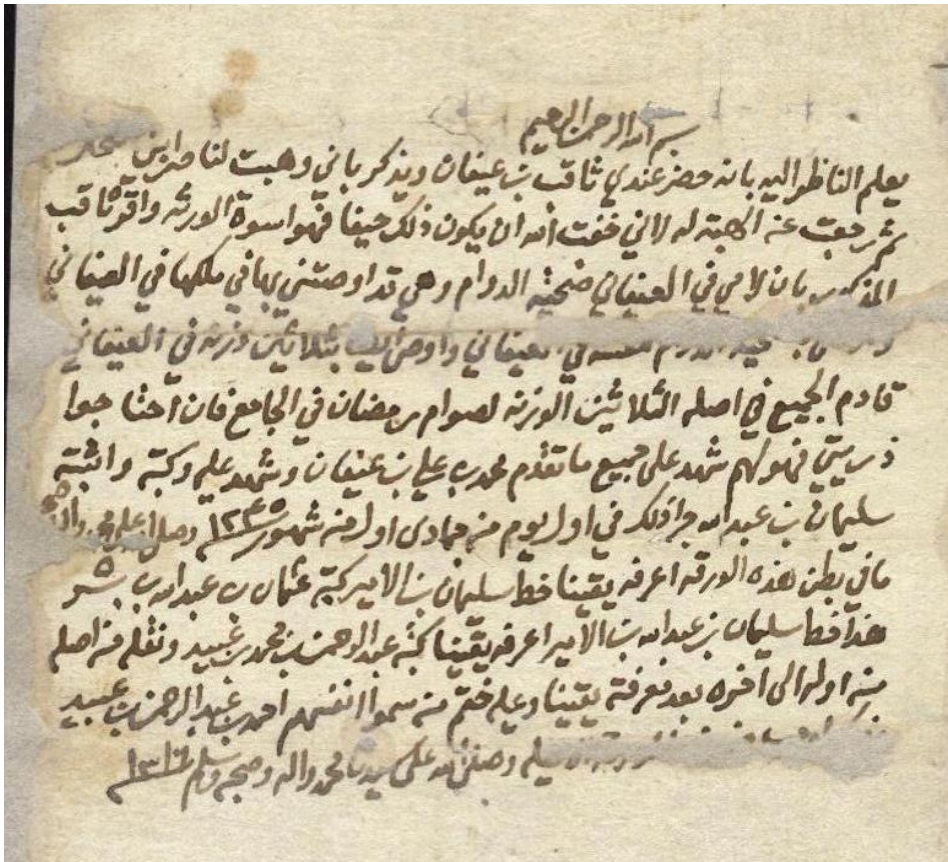 بسم الله الرحمن الرحيم
يعلم الناظر اليه بانه حضر عندي ثاقب بن عيفان ويذكر باني وهبت لناصر ابني
ثم رجعت عن الهبته له لاني خفت الله ان يكون ذلك حيفا فهو اسوة الورثه واقر ثاقب
المذكور بان لامي في العيفاني ضحيته الدوام وهي قد اوصتني بها في ملكها في العيفاني
في العيفاني واوصى بثلاثين وزنه في العيفاني
قادم الجميع في اصله الثلاثين الوزنه لصوام رمضان في الجامع فان احتاجوا
ذريتي فهو لهم شهد على جميع ما تقدم محمد بن علي بن عيفان وشهد عليه وكتبه واثبته
سليمان بن عبدالله جرا ذلك في اول يوم من جمادى اول من شهور ١٢٤٥ وصلى الله على محمد
ما في بطن هذه الورقه اعرفه يقينا خط سليمان بن الامير كتبه عثمان بن عبدالله بن بشر
هذا خط سليمان بن عبدالله بن الامير اعرفه يقينا كتبه عبدالرحمن بن محمد بن عبيد ونقله من اصله
من اوله الى آخره بعد معرفة يقينا وعليه ختم من سموا انفسهم احمد بن عبدالرحمن بن عبيد
وصلى الله على سيدنا محمد واله وصحبه وسلم ١٣١٦